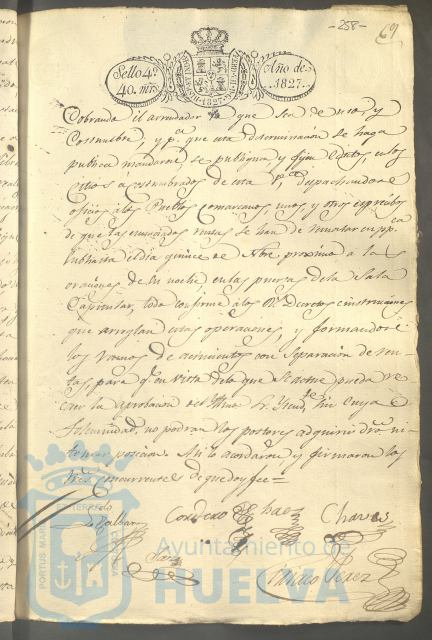 -258-
69
Sello 4º
40. mrs.
Año de
1827.
Cobrando el arrendador lo que sea de uso y
Costumbre, y pª que esta determinacion se haga
publica mandaron se publique y fijen Edictos en los
sitios acostumbrados de esta Vª despachandose
oficios á los Pueblos comarcanos, unos y otros expresibos
de que las enunciadas rentas se han de rematar en ppca
subhasta el dia quince de Nbre proximo a las
oraciones de su noche en las puertas de la Sala
Capitular, todo conforme á los Rs Decretos e instrucciones
que arreglan estas operaciones, y formandose
los ramos de cuimientos con separacion de ren-
tas, para qe en vista de lo que se actue pueda re-
caer la aprobacion del Illmo Sr. Yntendte, sin cuya
solemnidad no podran los postores adquirir dro ni
tomar posecion. Asi lo acordaron y firmaron los
Sres concurrentes de que doy fee=
Cordero
Chaves
Perez
Ayuntamiento de
HUELVA
PORTUS MARIS